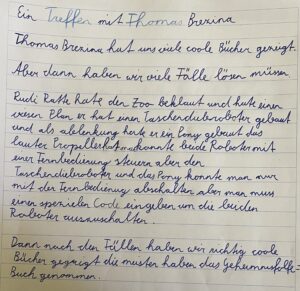 Ein Treffen mit Thomas Brezina
Thomas Brezina hat uns viele coole Bücher gezeigt.
Aber dann haben wir viele Fälle lösen müssen
Rudi Ratte hate den Zoo beklaut und hate einen
viesen Plan er hat einen Taschendiebroboter gebaut
und als ablenkung hate er ein Pony gebaut das
lauter Propellerhat man konnte beide Roboter mit
einer Fernbedinung steuern aber den
Taschendiebroboter und das Pony konnte man nur
mit der Fernbedienung abschalten aber man muss
einen spezielen Code eingeben um die beiden
Roboter auszuschalten.
Dann nach den Fällen haben wir richtig coole
Bücher gezeigt die muster haben das Geheimnisvolle=
Buch genommen.